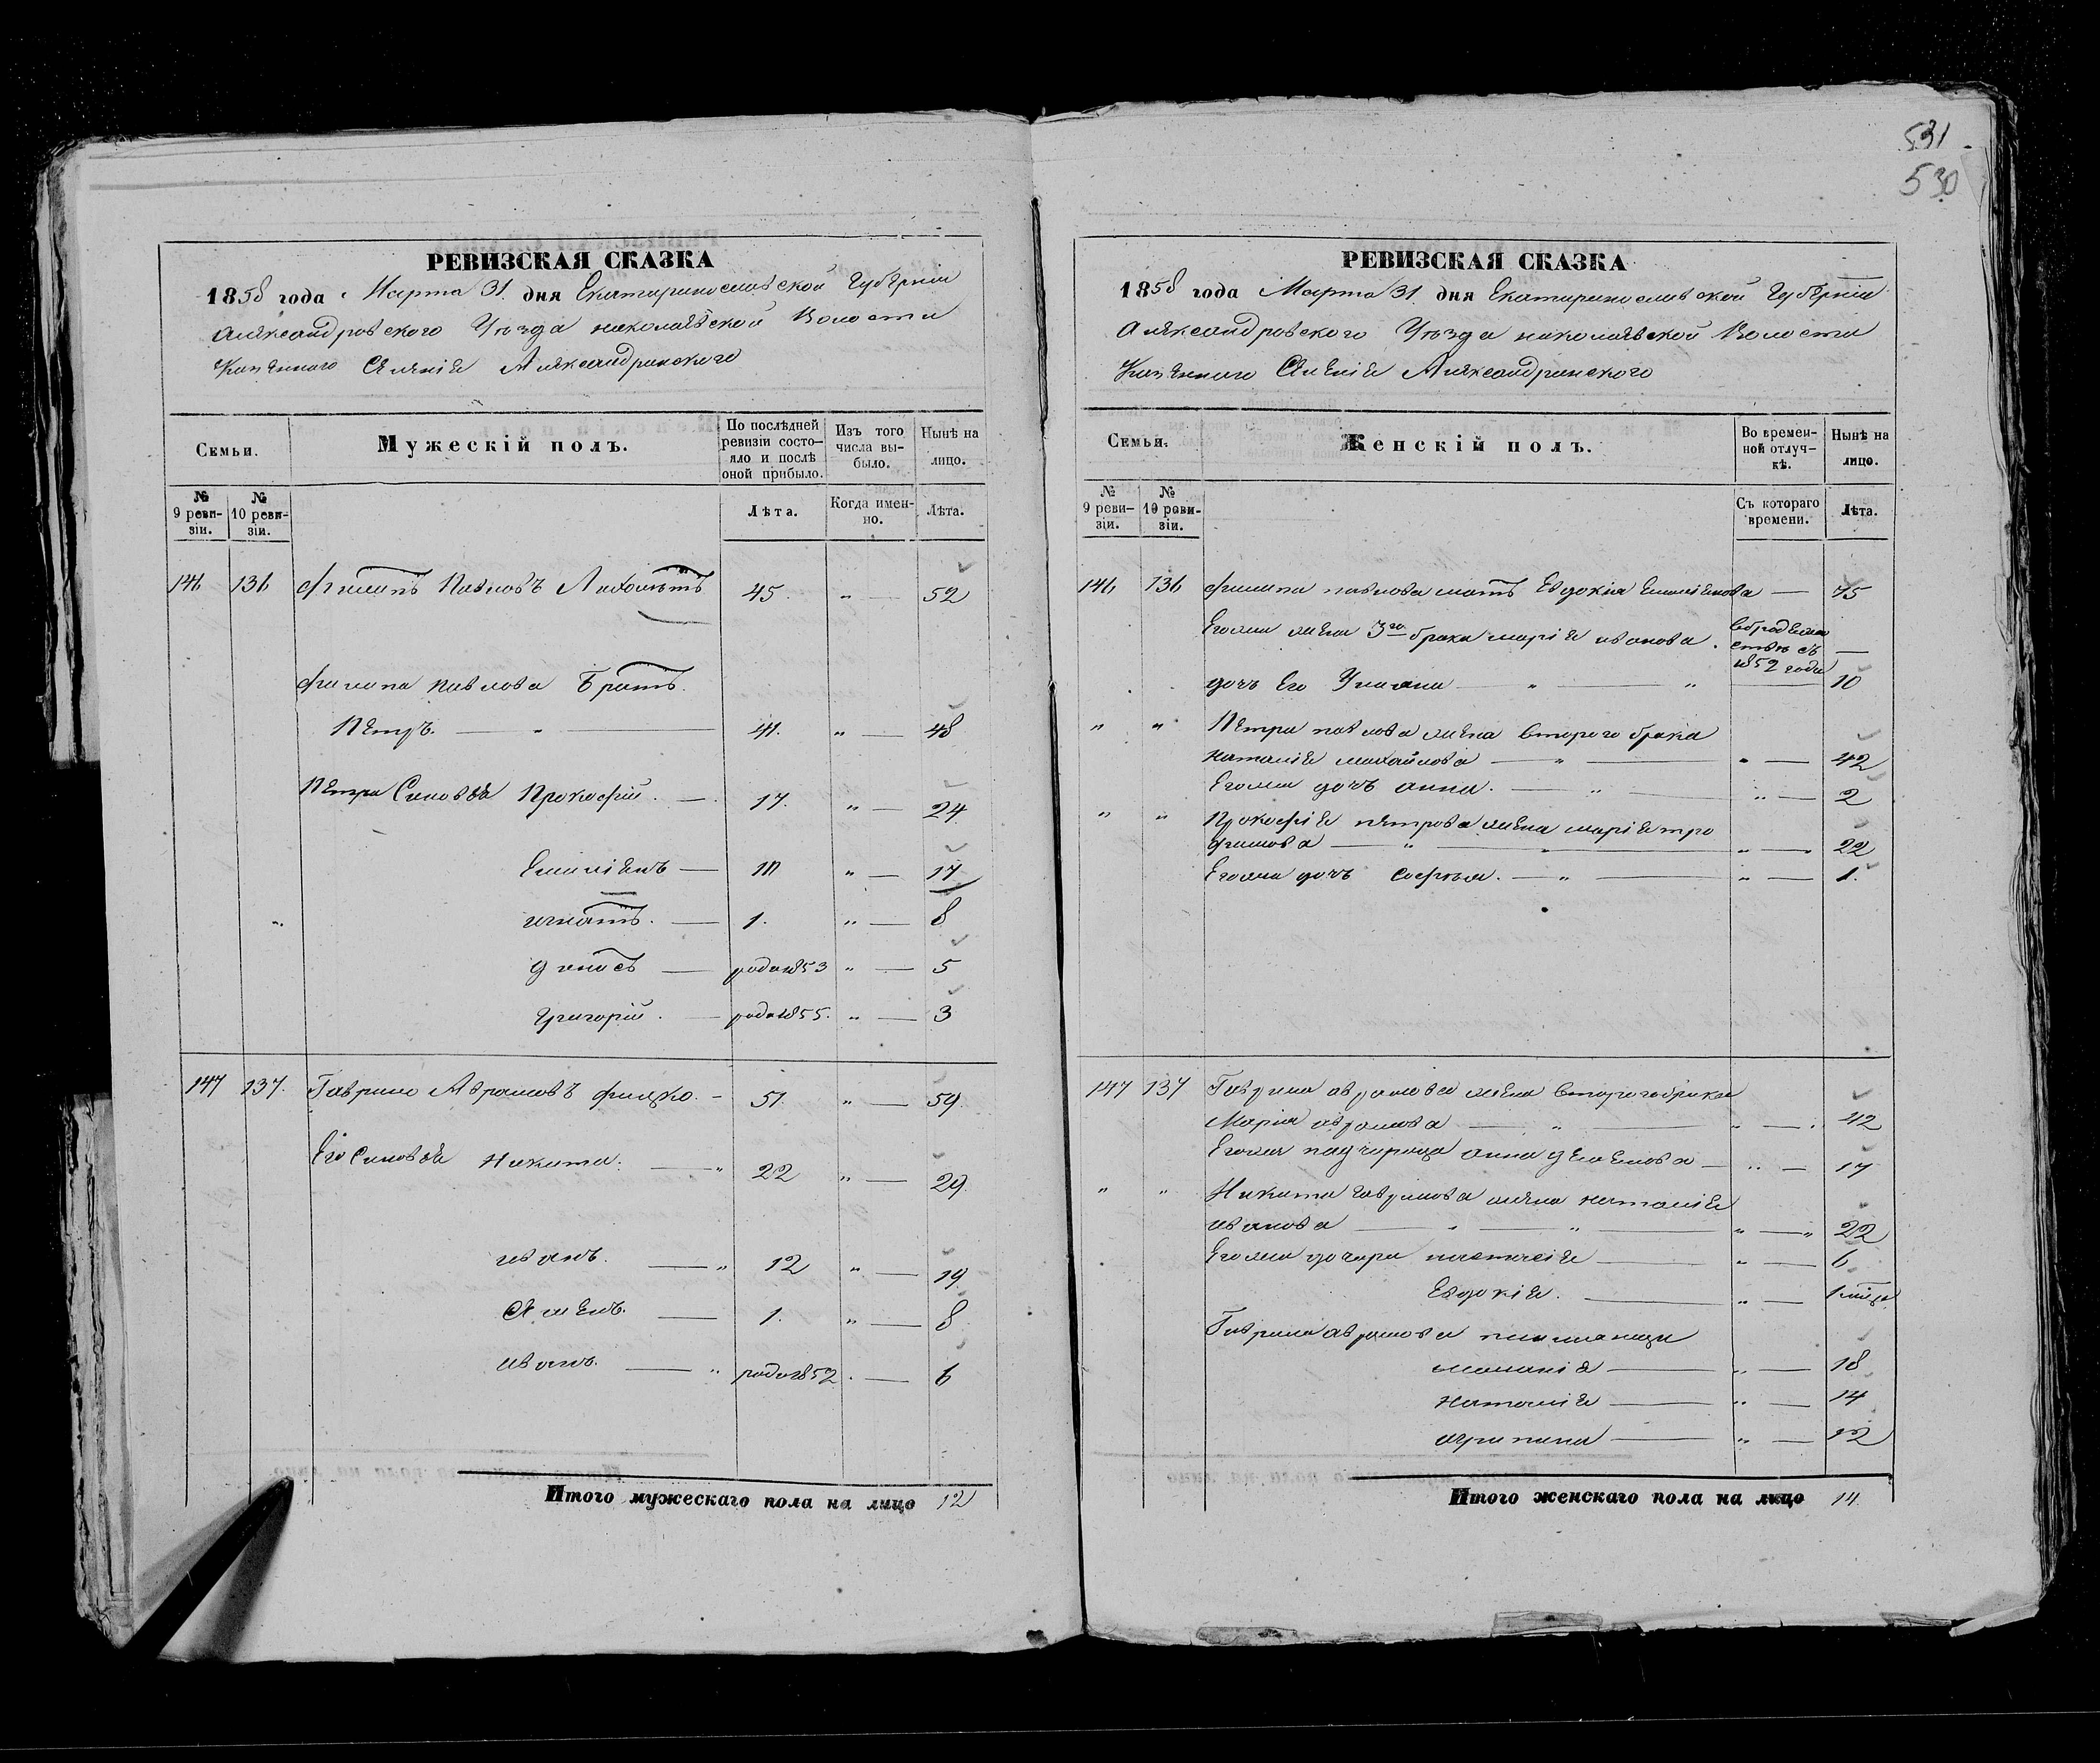 531
530
РЕВИЗСКАЯ СКАЗКА
1858 года Марта 31 дня Екатеринославской Губерніи
Александровского Уезда николаевской Волости
Казенного Селенія Александринского
Семьи.
Мужескій полъ.
По послѣдней ревизіи состояло и послѣ оной прибыло.
Изъ того числа выбыло.
Нынѣ на лицо.
№ 9 ревизіи.
№ 10 ревизіи.
Лѣта.
Когда именно.
Лѣта.
146 136 Филипъ Павловъ 45. " — 52
Филипа Павлова Братъ
Петръ. — " — 41. " — 48
Петра Синовья Прокофий. — 17. " — 24
Емилиенъ — 10 " — 17
игнатъ. — 1. " — 8
денисъ — родо 1853 " — 5
григорій. — родо 1855. " — 3
147 137. Гаврило Аврамовъ — 51. " — 59.
Его Синовья Никита. — " 22 " — 29.
иванъ. — " 12 " — 19.
Семенъ. — 1. " — 8
иванъ. — " родо 1852 . — 6
Итого мужескаго пола на лицо 12
РЕВИЗСКАЯ СКАЗКА
1858 года Марта 31 дня Екатеринославской Губерніи
Александровского Уезда николаевской Волости
Казенного Селенія Александринского
Семьи.
Женскій полъ.
Во временной отлучкѣ.
Нынѣ на лицо.
№ 9 ревизіи.
№ 10 ревизіи.
Съ котораго времени.
Лѣта.
146 136 Филипа павлова мать Евдокія Емилиенова — 75
Егожа жена 3го брака маріе иванова . съ 1852 года —
дочъ Его Улияна — " — " — 10
" " Петра павлова жена второго брака
наталіе михайлова — " — " — 42
Егожа дочъ анна. — " — " — 2
" " Прокофіе петрова жена маріе тро
фимова — " — " — " — 22
Егожа дочъ Софыя. — " — " — 1.
147 137 Гаврила аврамова жена второго брака
Марія аврамова — " — " — 42
Егожа падчерица анна семенова — " — 17
" " Никита гаврилова жена наталіе
иванова — " — " — " — " 22
Егожа дочери настасіе — " — 6
Евдокіе. — " —
Гаврила аврамова племяници
маланіе — " — 18
Наталіе — " — 14
агрипина — " — 12
Итого женскаго пола на лицо 14.